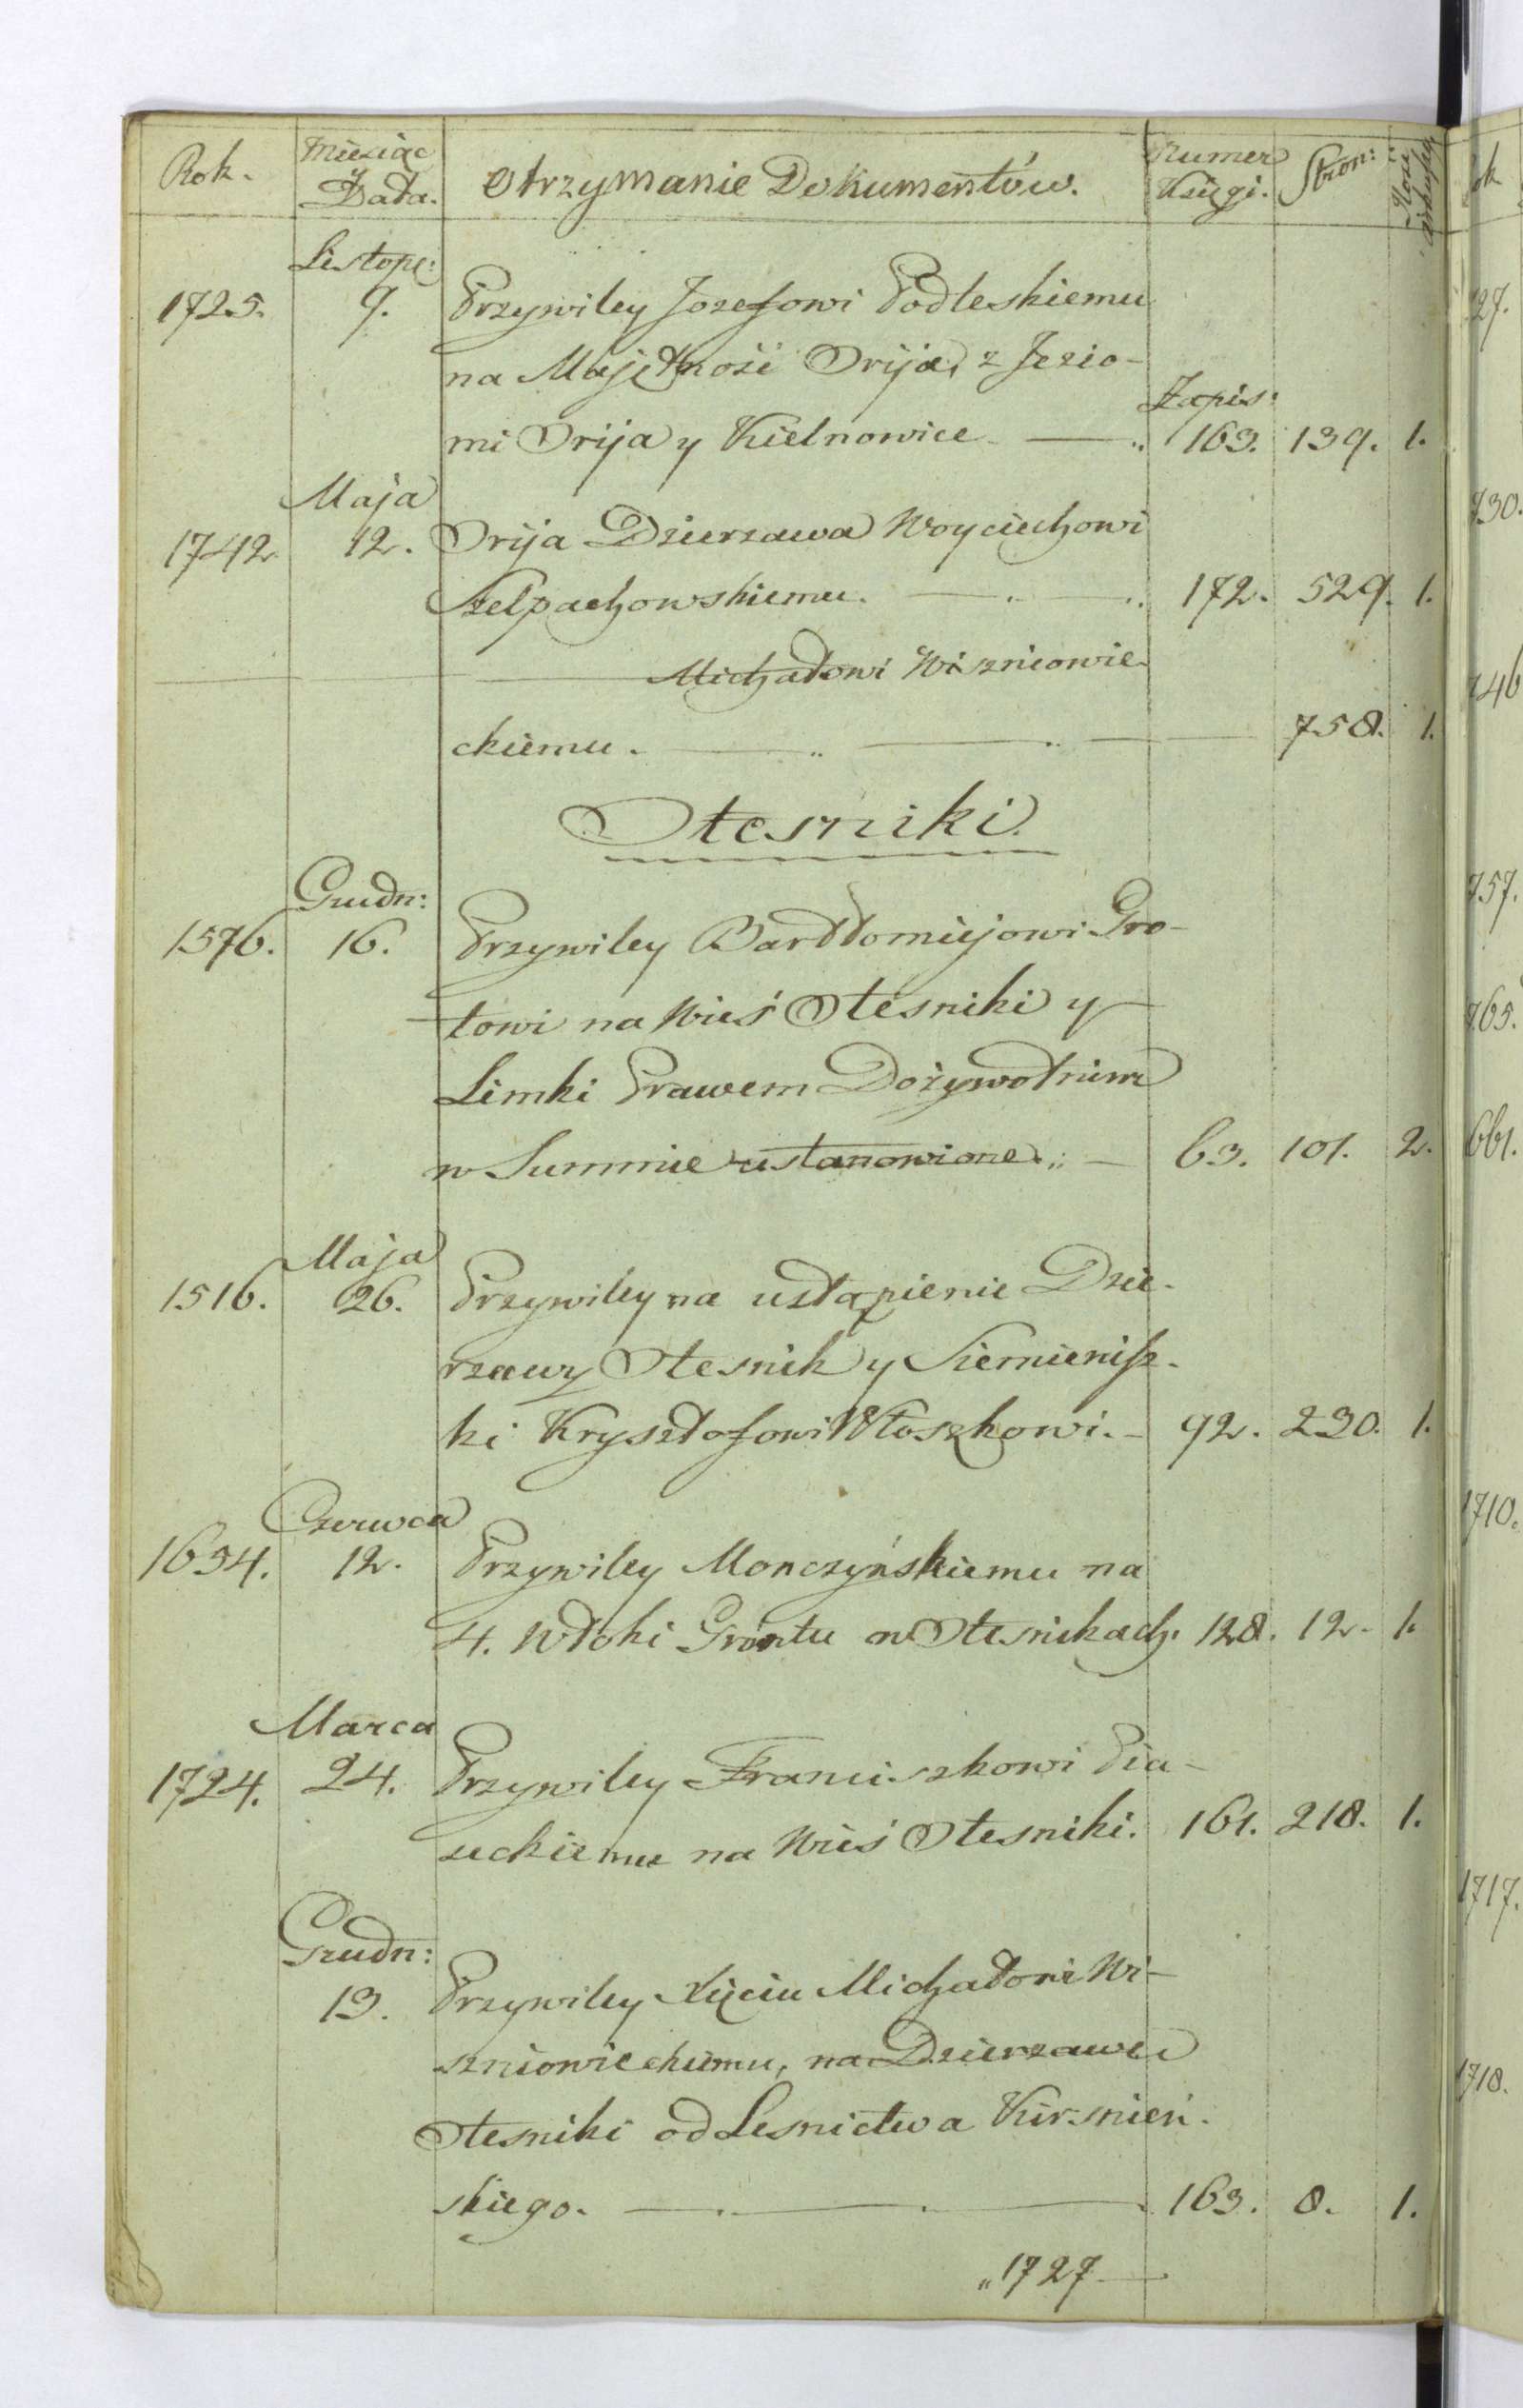 Rok. Miesiąc Data. Otrzymanie Dokumentów. Numer Księgi. Stron: Ilość
Listop:
1725. 9. Przywiley Jozefowi Podleskiemu
na Majętność Orija, z Jezio-
Zapis:
mi Orija y Kielnowice 163. 139. 1.
Maja
1742 12. Orija Dzierzawa Woyciechowi
Szelpachowskiemu. 172. 529. 1.
Michałowi Wiszniowie-
ckiemu. 758. 1.
Olesniki.
Grudn:
1576. 16. Przywiley Bartłomiejowi Gro-
towi na Wieś Olesniki y
Limki Prawem Dożywotnim
w Summie ustanowione. 63. 101. 2.
Maja
1516. 26. Przywiley na ustąpienie Dzie-
rzawy Olesnik y Siemienisz-
ki Krysztofowi Włoszkowi. 92. 230. 1.
Czerwca
1654. 12. Przywiley Monczyńskiemu na
4. Włoki Gróntu w Olesnikach. 128. 12. 1.
Marca
1724. 24. Przywiley Franciszkowi Pia-
seckiemu na Wieś Olesniki. 161. 218. 1.
Grudn:
13. Przywiley Xięciu Michałowi Wi-
szniowieckiemu, na Dzierzawe
Olesniki od Lesnictwa Kirsnień-
skiego. 163. 8. 1.
"1727
ok
727.
730.
746
757.
765.
661.
1710.
1717.
1718.